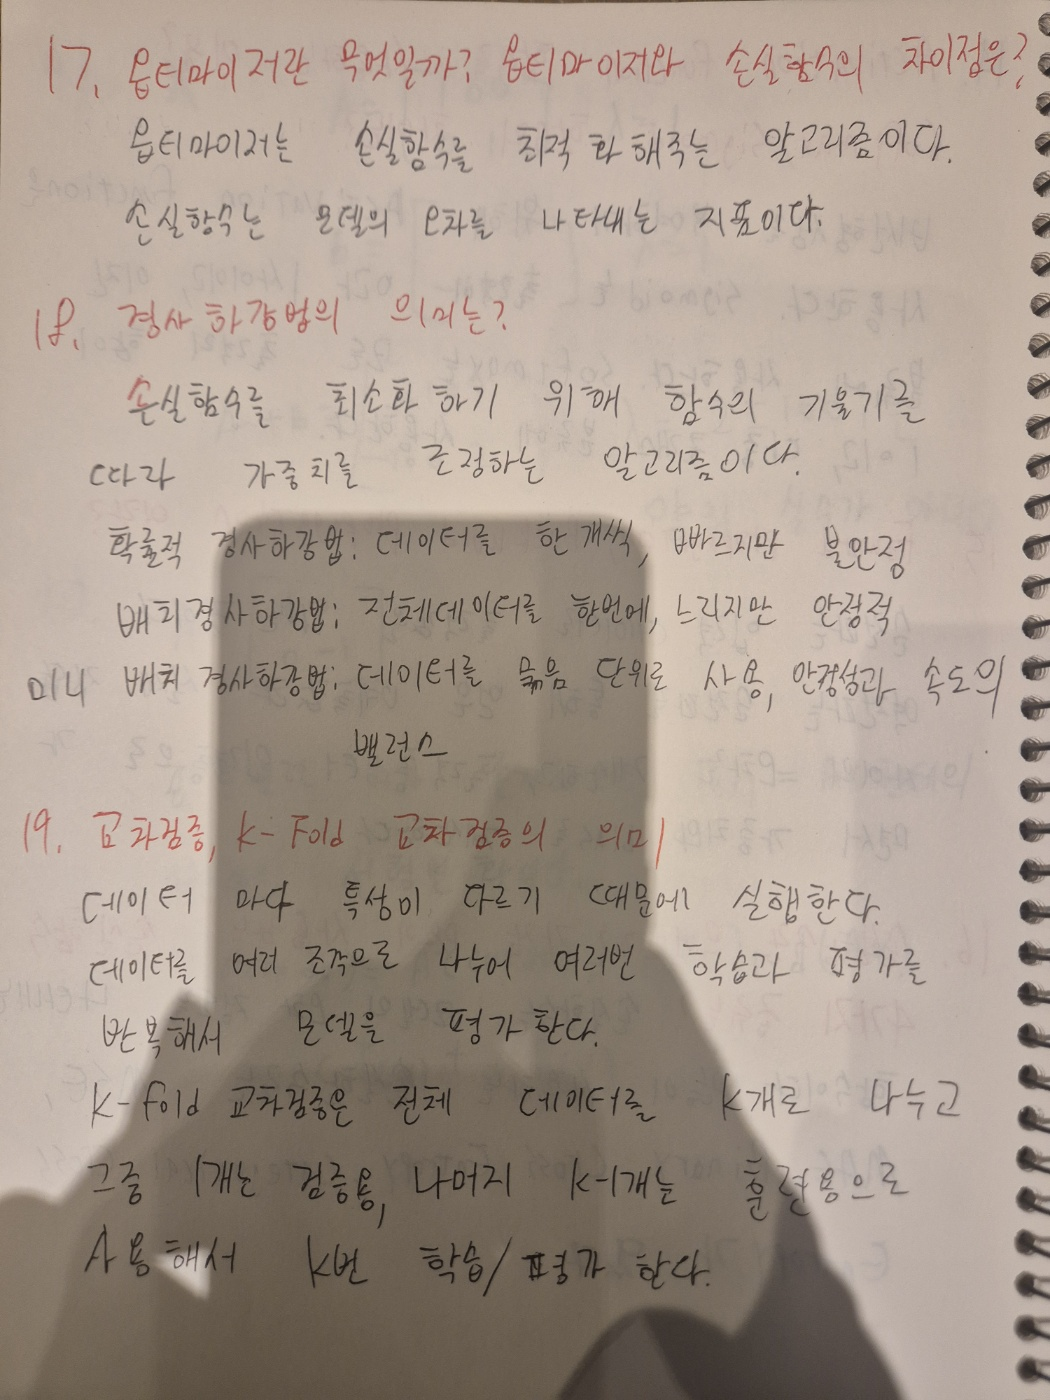 17. 옵티마이저란 무엇일까? 옵티마이저와 손실함수의 차이점은?
옵티마이저는 손실함수를 최적화해주는 알고리즘이다.
손실함수는 모델의 오차를 나타내는 지표이다.
18. 경사하강법의 의미는?
손실함수를 최소화 하기 위해 함수의 기울기를
따라 가중치를 조정하는 알고리즘이다.
확률적 경사하강법: 데이터를 한개씩, 빠르지만 불안정
배치경사하강법: 전체데이터를 한번에, 느리지만 안정적
미니 배치 경사하강법: 데이터를 묶음 단위로 사용, 안정성과 속도의
밸런스
19. 교차검증, K-Fold 교차검증의 의미
데이터 마다 특성이 다르기 때문에 실행한다.
데이터를 여러 조각으로 나누어 여러번 학습과 평가를
반복해서 모델을 평가한다.
K-fold 교차검증은 전체 데이터를 K개로 나누고
그중 1개는 검증용, 나머지 K-1개는 훈련용으로
사용해서 K번 학습/평가 한다.